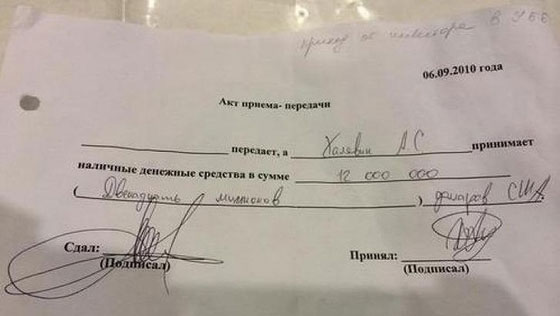 приход от инвестора в УБВ
06.09.2010 года
Акт приема- передачи
передает, а Халевин А.С принимает
наличные денежные средства в сумме 12 000 000
( Двенадцать миллионов ) долларов США.
Сдал:
Принял:
(Подписал)
(Подписал)